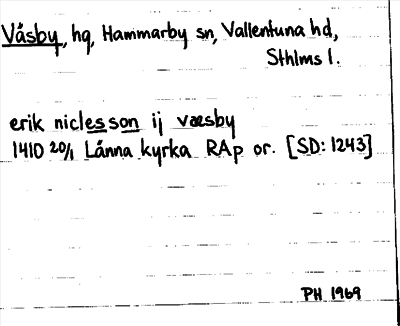 Väsby, hg, Hammarby sn, Vallentuna hd,
Sthlms l.
erik niclesson ij væsby
1410 20/1 Länna kyrka RAp or. [SD: 1243]
PH 1969